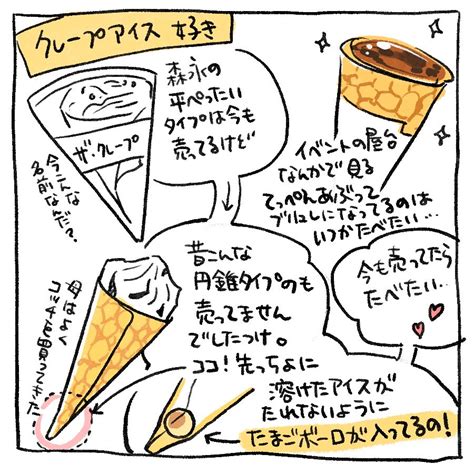 クレープアイス 好き
森永の
平べったい
タイプは今も
売ってるけど
ザ・クレープ
今こんな
名前なんだ?
イベントの屋台
なんかで見る
てっぺんあぶって
ブリュレになってるのは
いつかたべたい…
昔こんな
円錐タイプのも
売ってません
でしたっけ。
母はよく
コッチを買ってきた
今も売ってたら
たべたい…
ココ!先っちょに
溶けたアイスが
たれないように
たまごボーロが入ってるの!